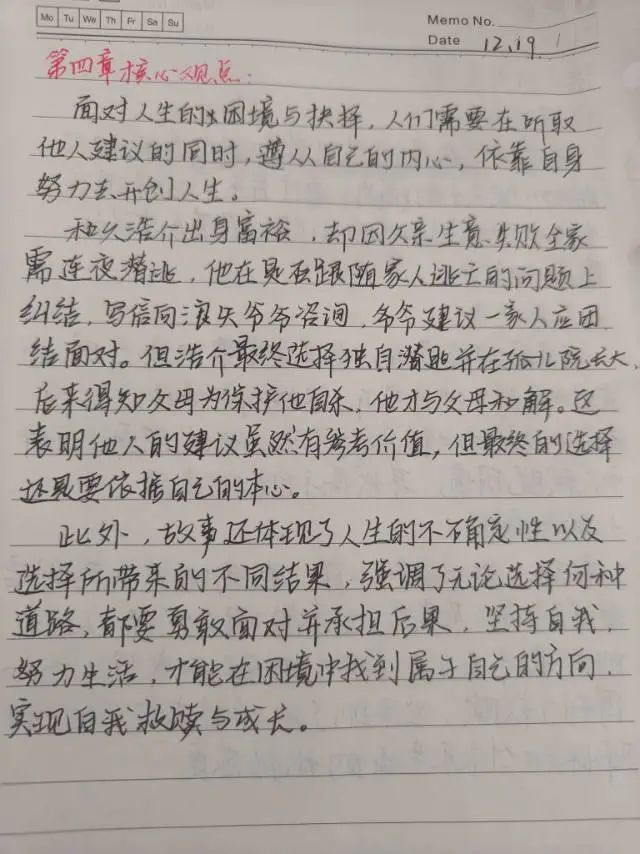 Mo Tu We Th Fr Sa Su
Memo No.
Date 12.19.
第四章核心观点:
面对人生的困境与抉择,人们需要在听取
他人建议的同时,遵从自己的内心,依靠自身
努力去开创人生。
和久浩介出身富裕,却因父亲生意失败全家
需连夜潜逃,他在是否跟随家人逃亡的问题上
纠结,写信向浪矢爷爷咨询,爷爷建议一家人应团
结面对。但浩介最终选择独自潜逃并在孤儿院长大,
后来得知父母为保护他自杀,他才与父母和解。这
表明他人的建议虽然有参考价值,但最终的选择
还是要依据自己的本心。
此外,故事还体现了人生的不确定性以及
选择所带来的不同结果,强调了无论选择何种
道路,都要勇敢面对并承担后果,坚持自我,
努力生活,才能在困境中找到属于自己的方向,
实现自我救赎与成长。